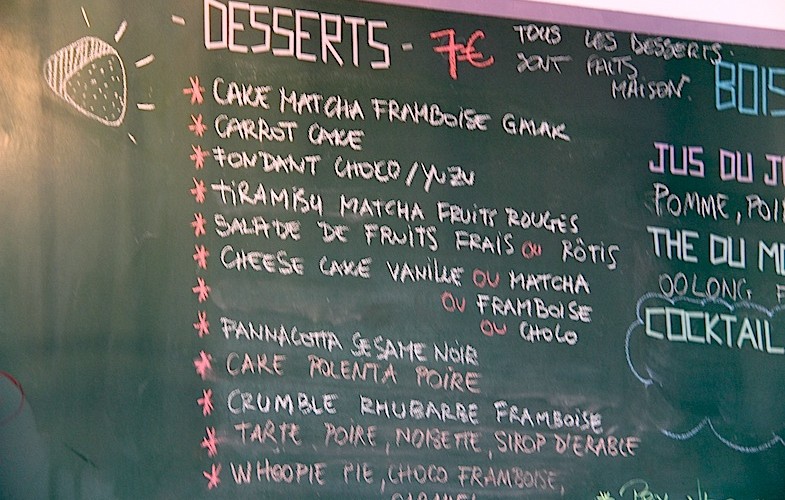 - DESSERTS - 7€
TOUS LES DESSERTS
SONT FAITS
MAISON.
* CAKE MATCHA FRAMBOISE GALAK
* CARROT CAKE
* FONDANT CHOCO / YUZU
* TIRAMISU MATCHA FRUITS ROUGES
* SALADE DE FRUITS FRAIS OU RÔTIS
* CHEESE CAKE VANILLE OU MATCHA
* OU FRAMBOISE
* OU CHOCO
PANNACOTTA SESAME NOIR
* CAKE POLENTA POIRE
* CRUMBLE RHUBARBE FRAMBOISE
* TARTE POIRE, NOISETTE, SIROP D'ERABLE
* WHOOPIE PIE, CHOCO FRAMBOISE,
BOIS
JUS DU J
POMME, POI
THE DU MO
OOLONG
COCKTAIL